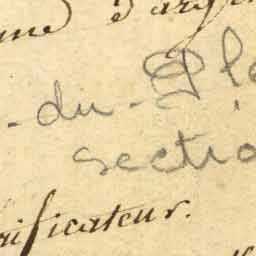 me d'arge
-du-Plé
sectio
rificateur.